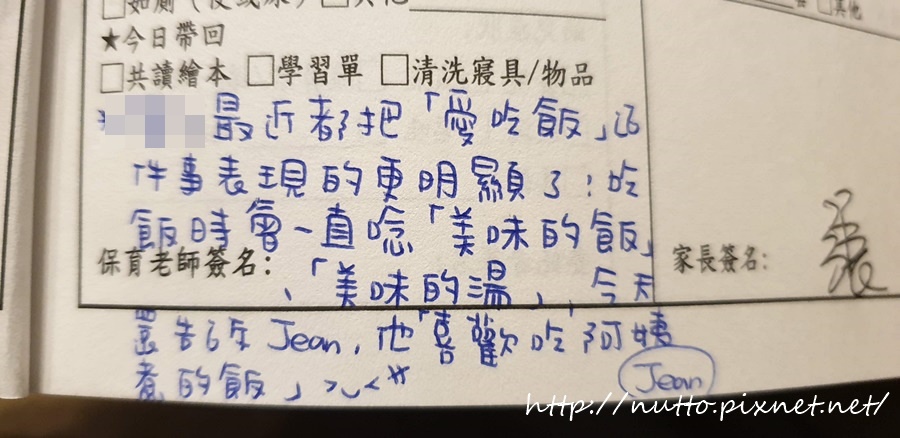 □如廁（
□其他
□其他
★今日帶回
□共讀繪本 □學習單 □清洗寢具/物品
最近都把「愛吃飯」這
件事表現的更明顯了！吃
飯時會一直唸「美味的飯」
保育老師簽名：
、「美味的湯」，今天
家長簽名：
還告訴Jean，他「喜歡吃阿姨
煮的飯」>◡<
Jean
http://nutto.pixnet.net/